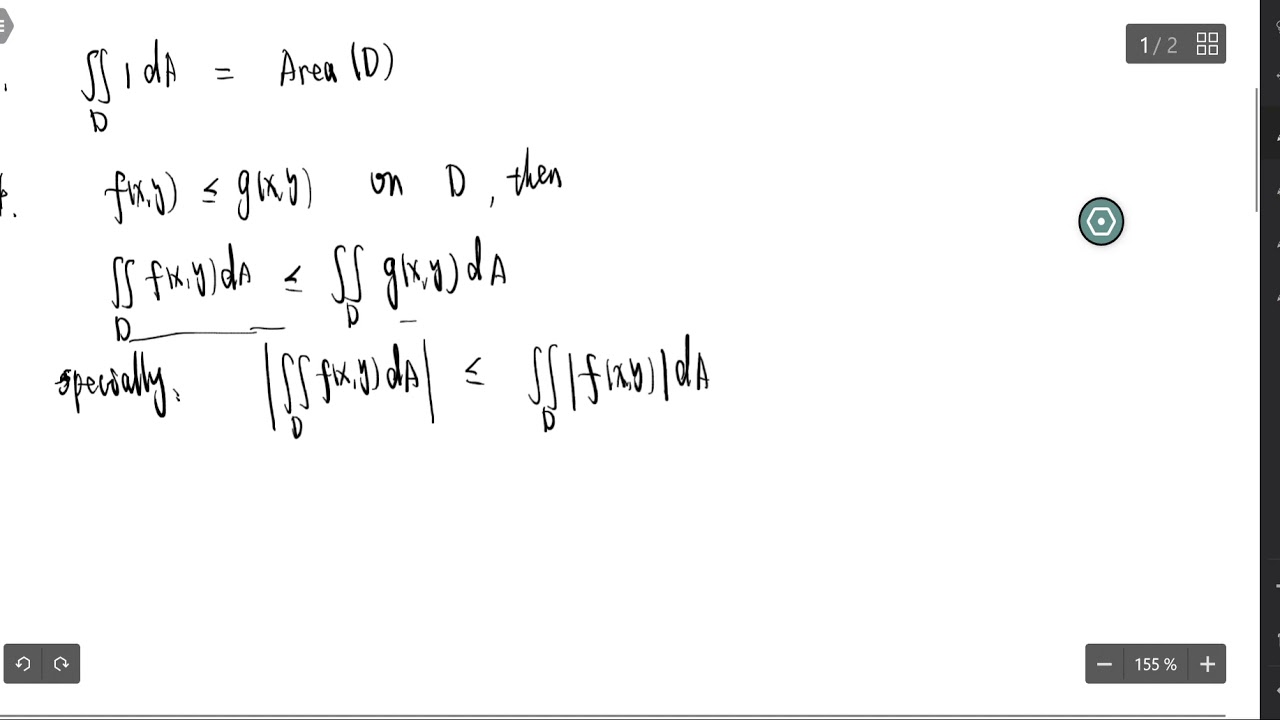 ∬_D 1 dA = Area (D)
f(x,y) ≤ g(x,y) on D, then
∬_D f(x,y) dA ≤ ∬_D g(x,y) dA
specially, |∬_D f(x,y) dA| ≤ ∬_D |f(x,y)| dA
1 / 2
155 %